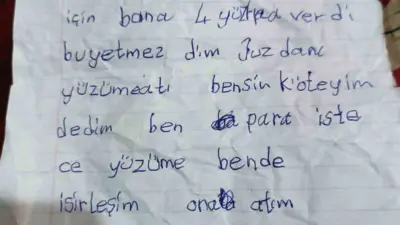 için bana 4 yüzlira verdi
buyetmez dim Juzdanı
yüzümeatı bensin kiöteyim
dedim ben para iste
ce yüzüme bende
isirleşim ona atım